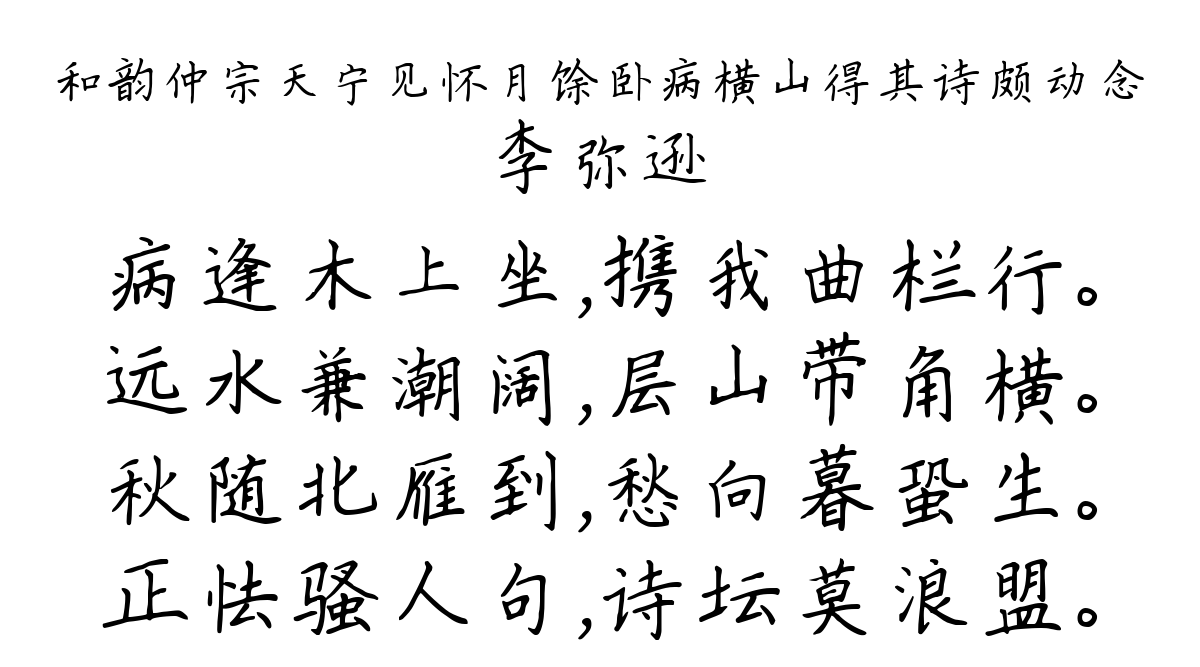 和韵仲宗天宁见怀月馀卧病横山得其诗颇动念
李弥逊
病逢木上坐,携我曲栏行。
远水兼潮阔,层山带角横。
秋随北雁到,愁向暮蛩生。
正怯骚人句,诗坛莫浪盟。